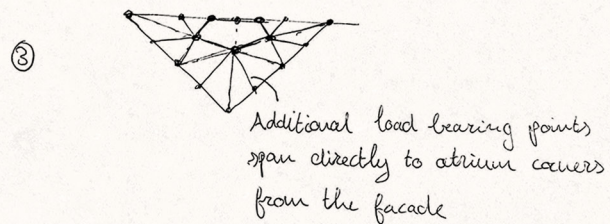 ③
Additional load bearing points
span directly to atrium corners
from the facade